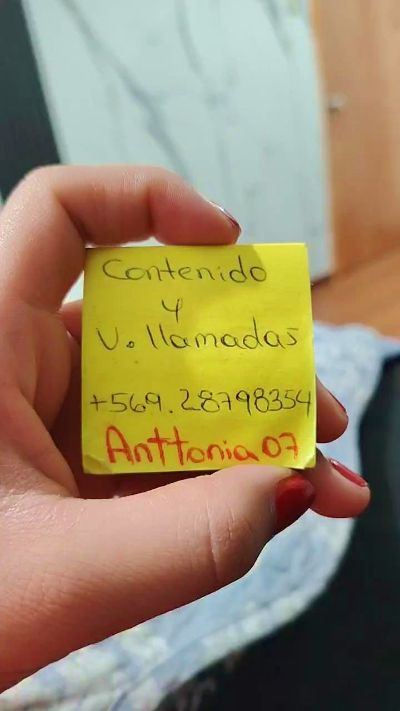 Contenido
y
V. llamadas
+569.28798354
Anttonia07